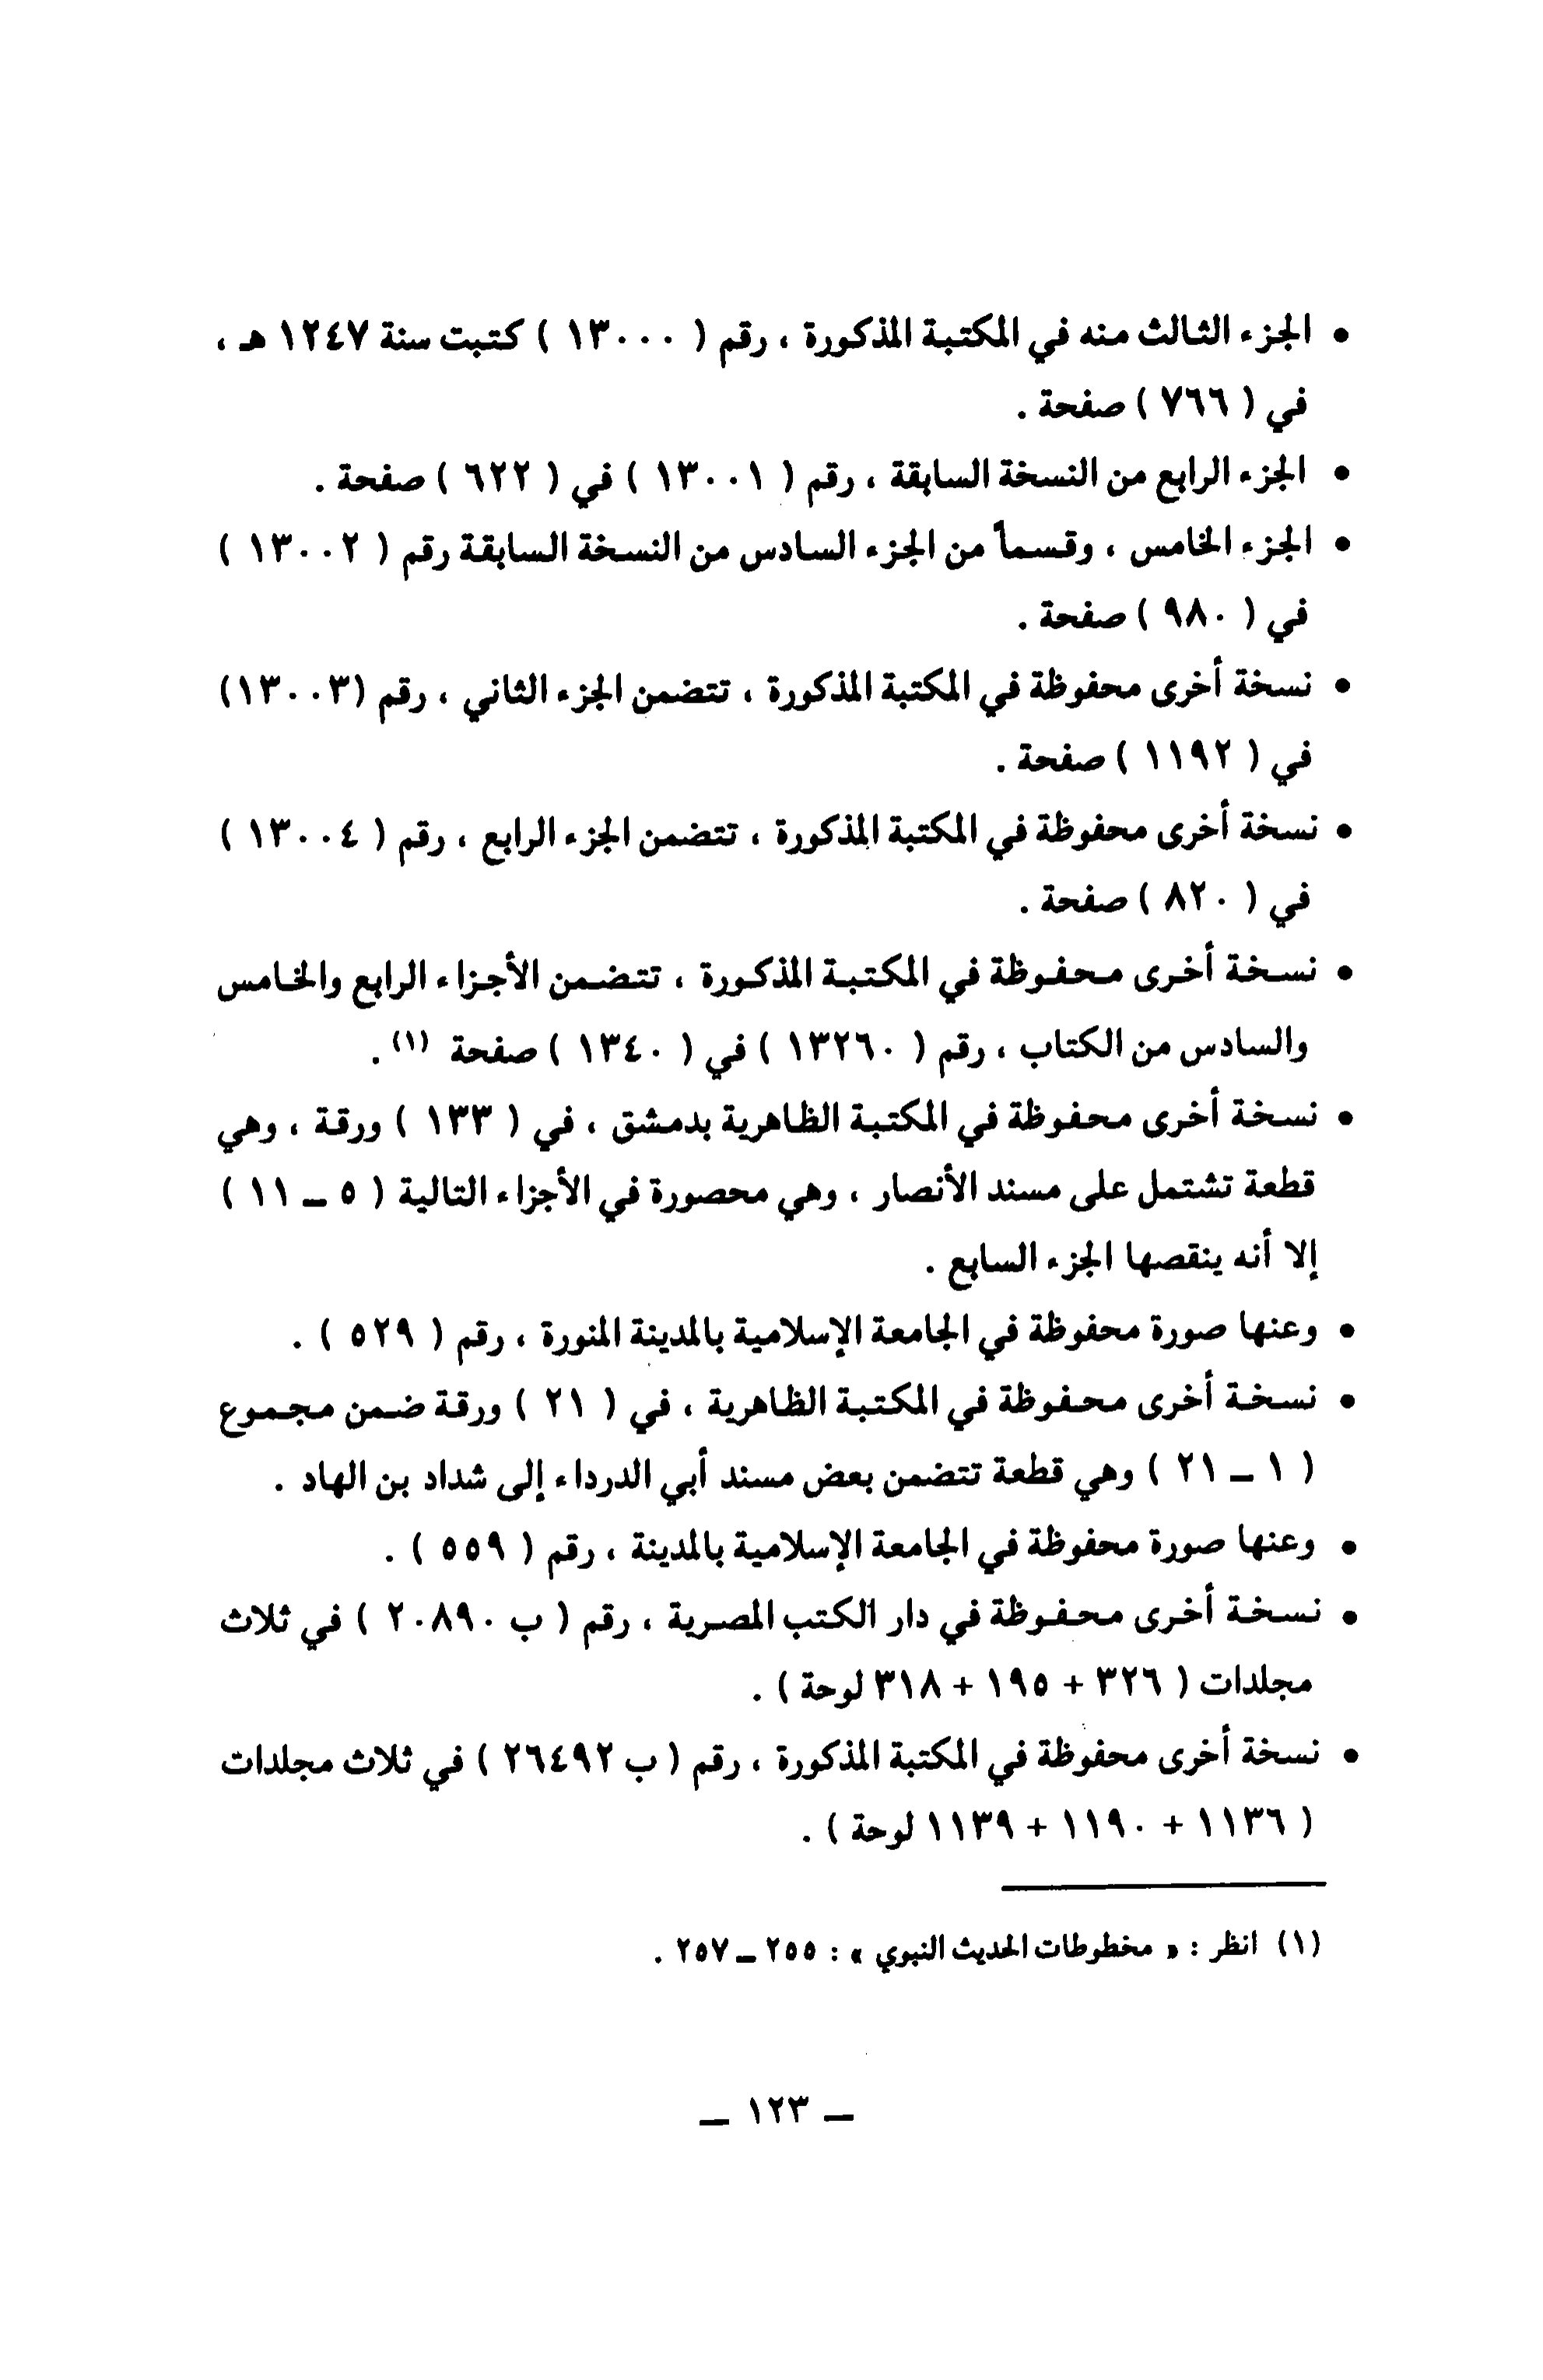 • الجزء الثالث منه في المكتبة المذكورة ، رقم ( ١٣٠٠٠ ) كتبت سنة ١٢٤٧ هـ ،
في ( ٧٦٦ ) صفحة .
• الجزء الرابع من النسخة السابقة ، رقم ( ١٣٠٠١ ) في ( ٦٢٢ ) صفحة .
• الجزء الخامس ، وقسماً من الجزء السادس من النسخة السابقة رقم ( ١٣٠٠٢ )
في ( ٩٨٠ ) صفحة .
• نسخة أخرى محفوظة في المكتبة المذكورة ، تتضمن الجزء الثاني ، رقم (١٣٠٠٣)
في ( ١١٩٢ ) صفحة .
• نسخة أخرى محفوظة في المكتبة المذكورة ، تتضمن الجزء الرابع ، رقم ( ١٣٠٠٤ )
في ( ٨٢٠ ) صفحة .
• نسخة أخرى محفوظة في المكتبة المذكورة ، تتضمن الأجزاء الرابع والخامس
والسادس من الكتاب ، رقم ( ١٣٢٦٠ ) في ( ١٣٤٠ ) صفحة (١) .
• نسخة أخرى محفوظة في المكتبة الظاهرية بدمشق ، في ( ١٣٣ ) ورقة ، وهي
قطعة تشتمل على مسند الأنصار ، وهي محصورة في الأجزاء التالية ( ٥ ــ ١١ )
إلا أنه ينقصها الجزء السابع .
• وعنها صورة محفوظة في الجامعة الإسلامية بالمدينة المنورة ، رقم ( ٥٢٩ ) .
• نسخة أخرى محفوظة في المكتبة الظاهرية ، في ( ٢١ ) ورقة ضمن مجموع
( ١ ــ ٢١ ) وهي قطعة تتضمن بعض مسند أبي الدرداء إلى شداد بن الهاد .
• وعنها صورة محفوظة في الجامعة الإسلامية بالمدينة ، رقم ( ٥٥٩ ) .
• نسخة أخرى محفوظة في دار الكتب المصرية ، رقم ( ب ٢٠٨٩٠ ) في ثلاث
مجلدات ( ٣٢٦ + ١٩٥ + ٣١٨ لوحة ) .
• نسخة أخرى محفوظة في المكتبة المذكورة ، رقم ( ب ٢٦٤٩٢ ) في ثلاث مجلدات
( ١١٣٦ + ١١٩٠ + ١١٣٩ لوحة ) .
(١) انظر : « مخطوطات الحديث النبوي » : ٢٥٥ ــ ٢٥٧ .
ــ ١٢٣ ــ